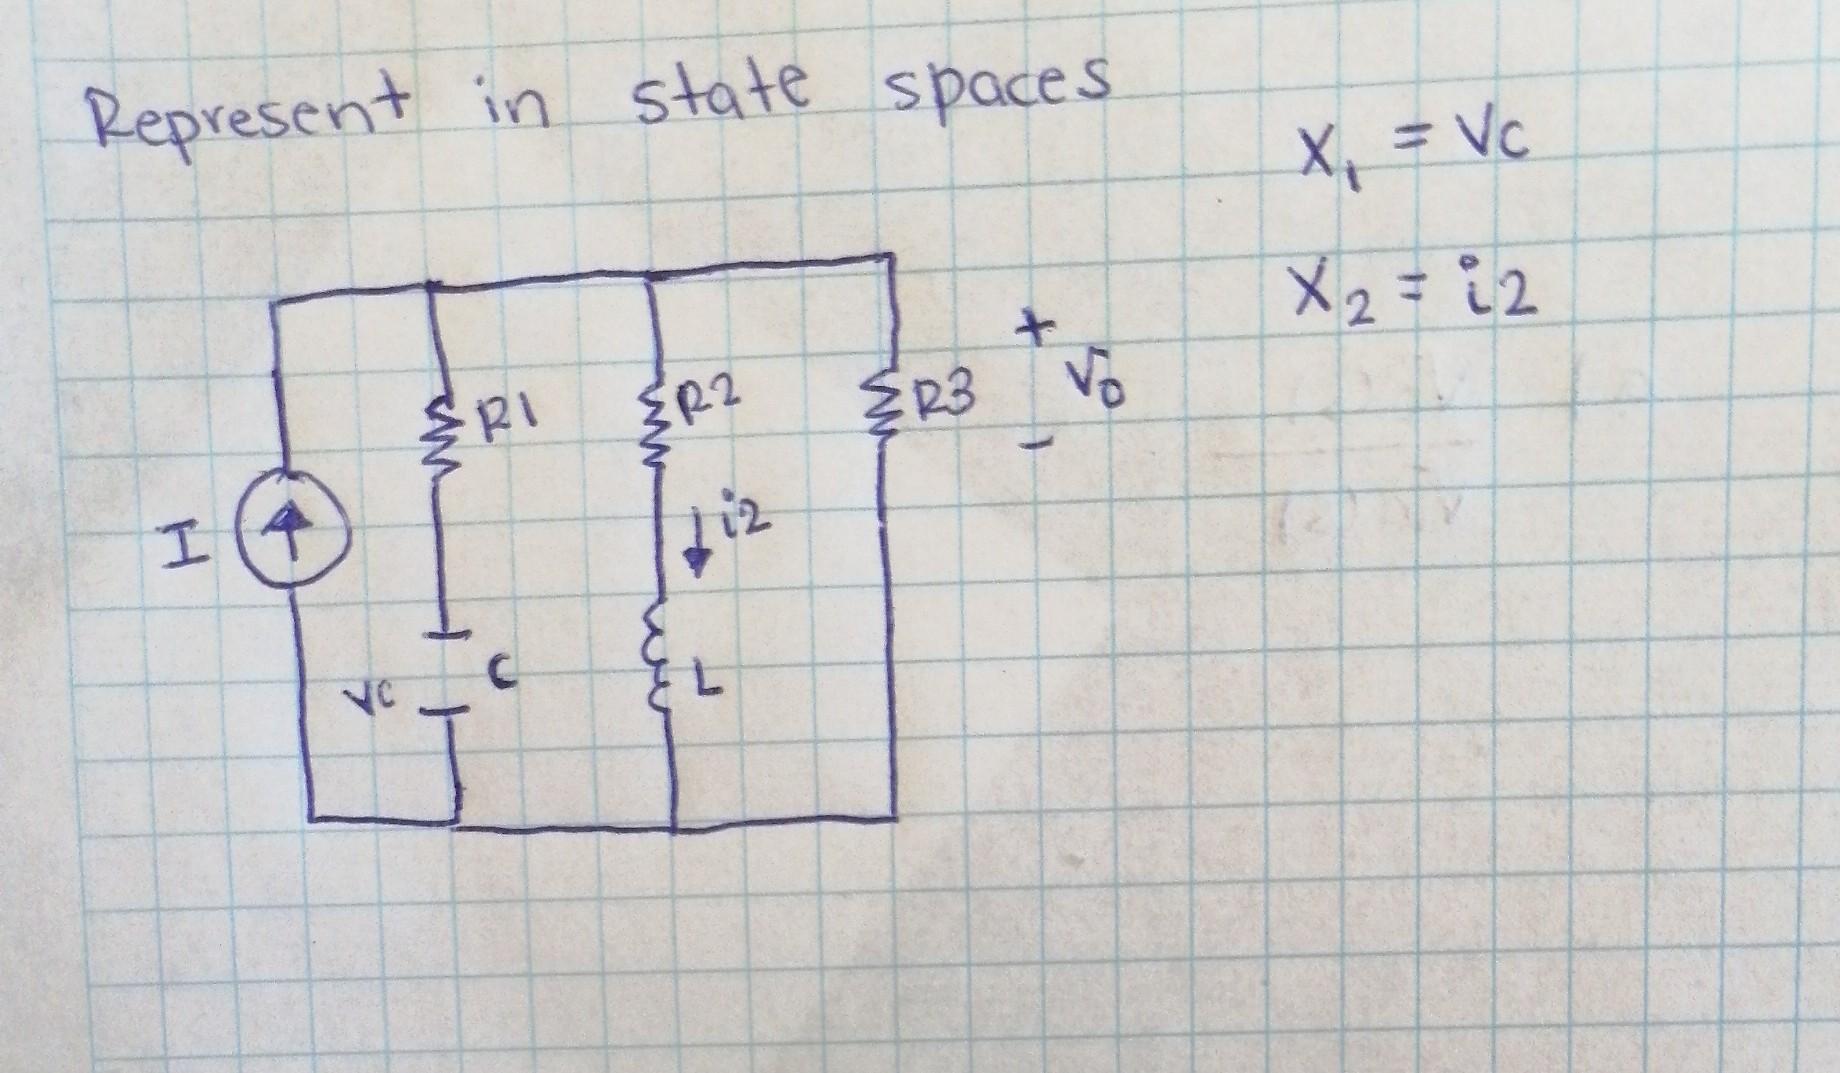 Represent in state spaces
x₁ = Vc
x₂ = i2
I
R1
R2
R3
+
Vo
-
i2
Vc
C
L